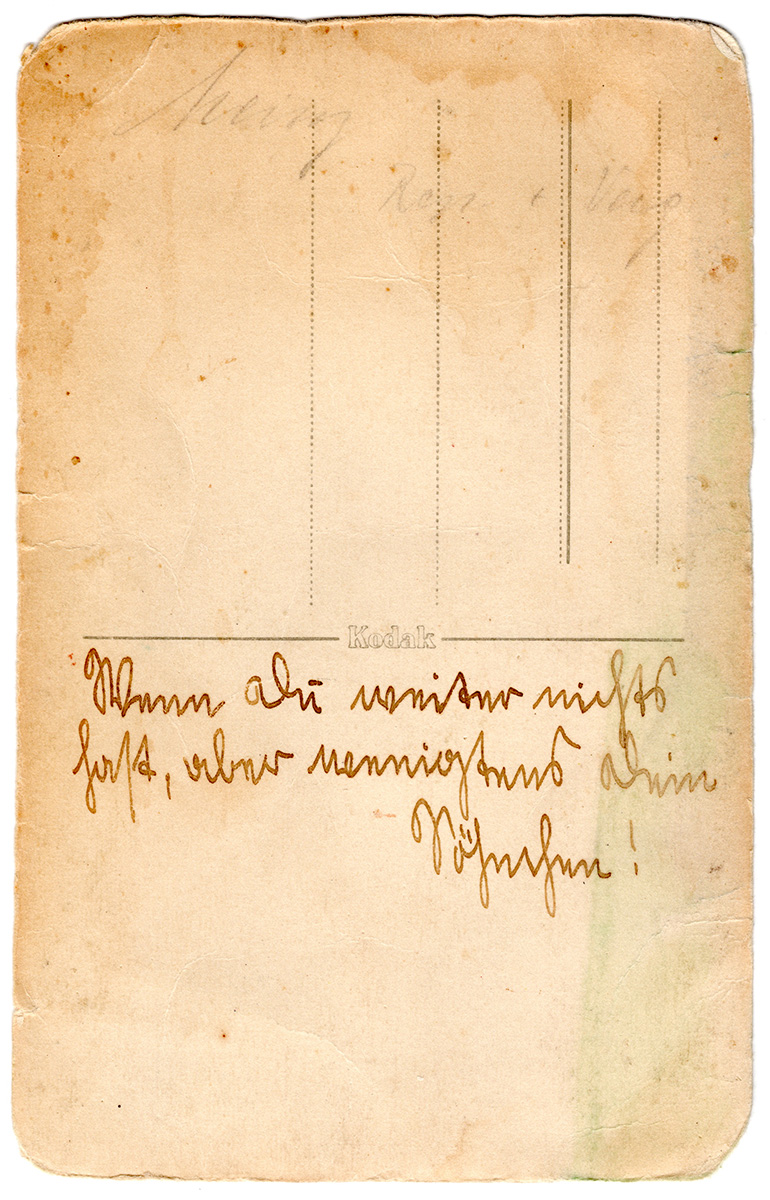 Kodak
Wenn Du weiter nichts
hast, aber wenigstens Dein
Söhnchen!